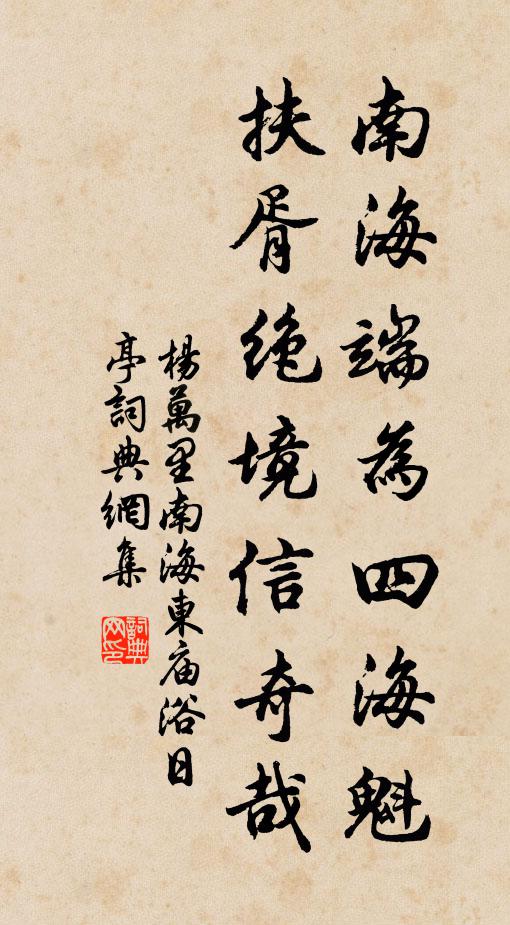 南海端為四海魁
扶胥絶境信奇哉
楊萬里南海東庙浴日
亭詞典網集
詞典
网印